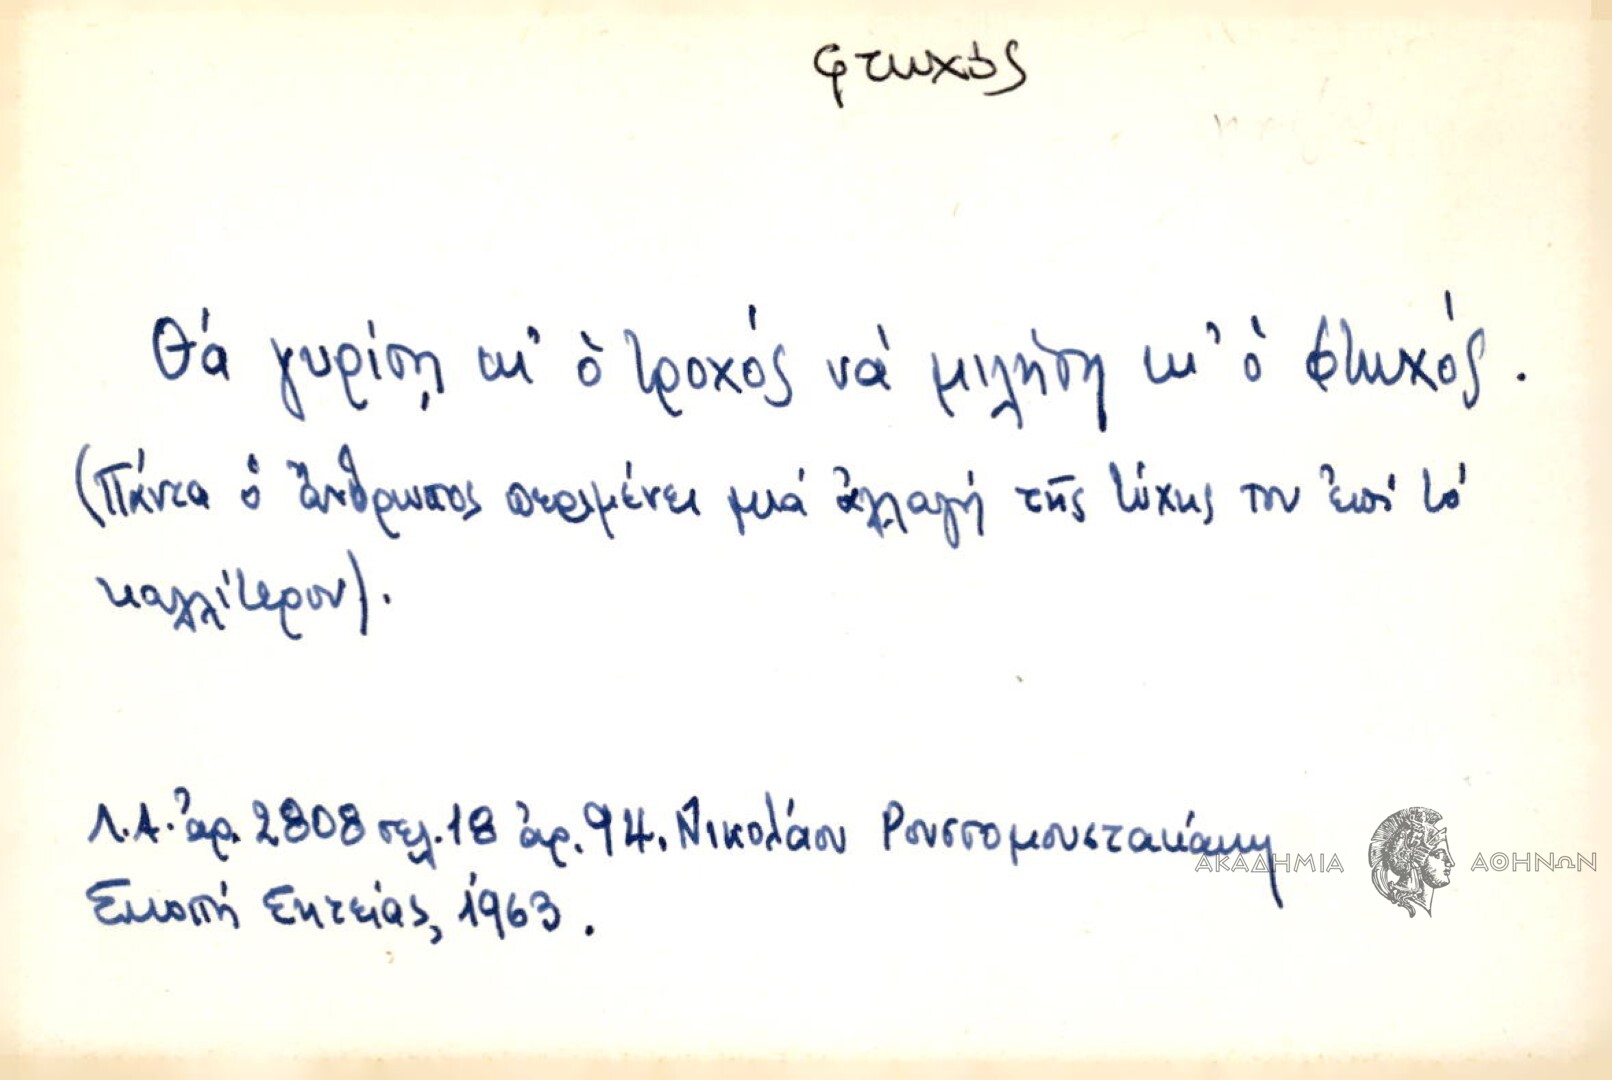 φτωχός
Θά γυρίσῃ κι' ὁ τροχός νά μιλήσῃ κι' ὁ φτωχός.
(Πάντα ὁ ἄνθρωπος περιμένει μιά ἀλλαγή τῆς τύχης του ἐπί τό
καλλίτερον).
Λ.Α. ἀρ. 2808 σελ. 18 ἀρ. 94. Νικολάου Ρουσσομουστακάκη
Σκοπή Σητείας, 1963.
ΑΚΑΔΗΜΙΑ ΑΘΗΝΩΝ